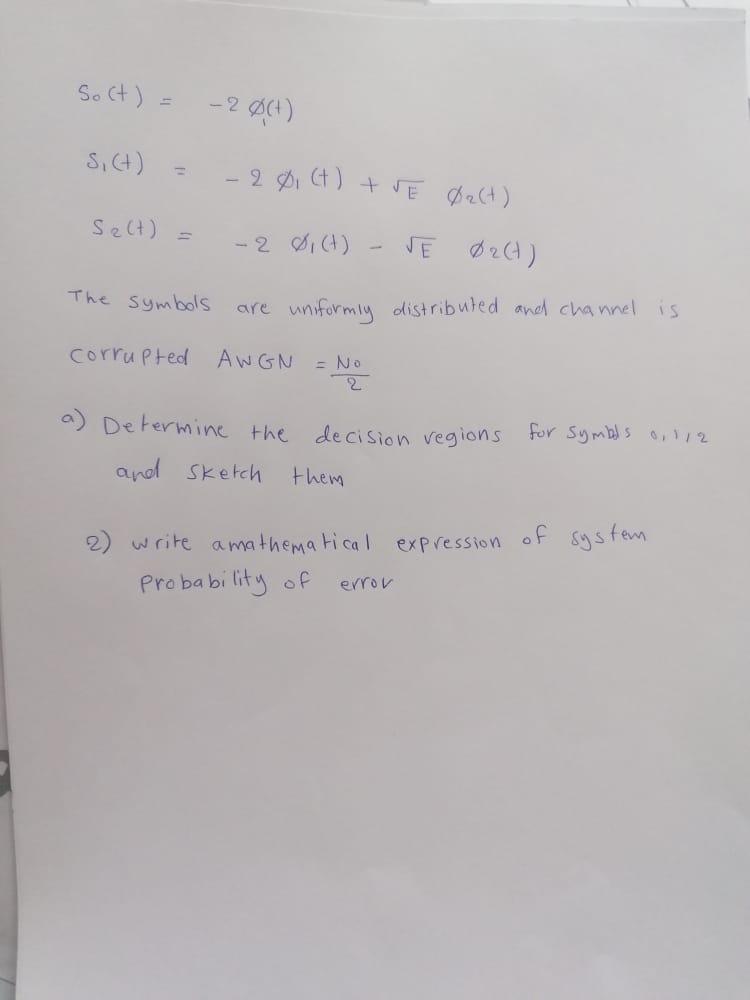 S₀(t) = -2 Ø₁(t)
S₁(t) = -2 Ø₁(t) + √E Ø₂(t)
S₂(t) = -2 Ø₁(t) - √E Ø₂(t)
The symbols are uniformly distributed and channel is
corrupted AWGN = No/2
a) Determine the decision regions for symbls 0,1,2
and sketch them
2) write amathematical expression of system
probability of error